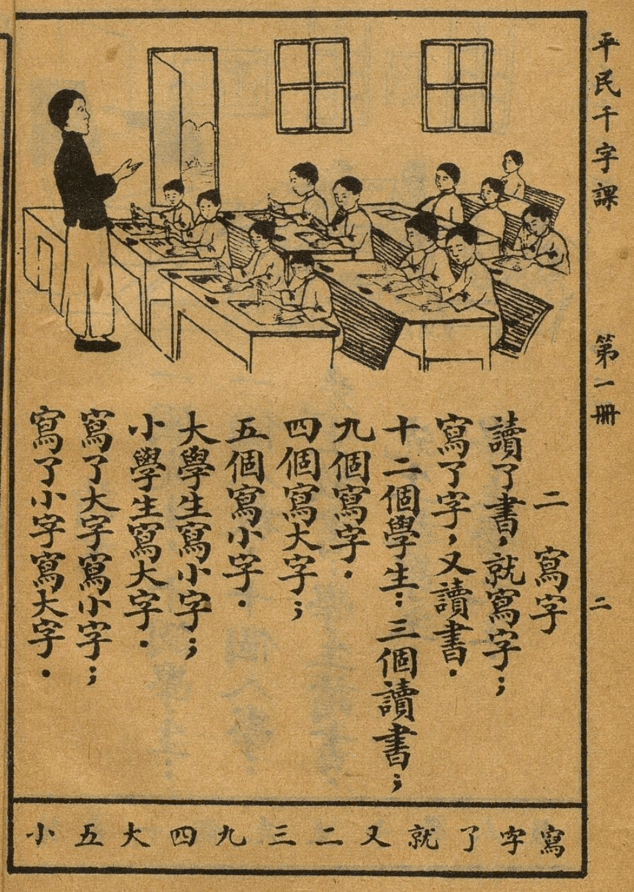 平民千字課
第一冊
二
二 寫字
讀了書,就寫字;
寫了字,又讀書.
十二個學生:三個讀書;
九個寫字.
四個寫大字;
五個寫小字.
大學生寫小字;
小學生寫大字.
寫了大字寫小字;
寫了小字寫大字.
寫字了就又二三九四大五小